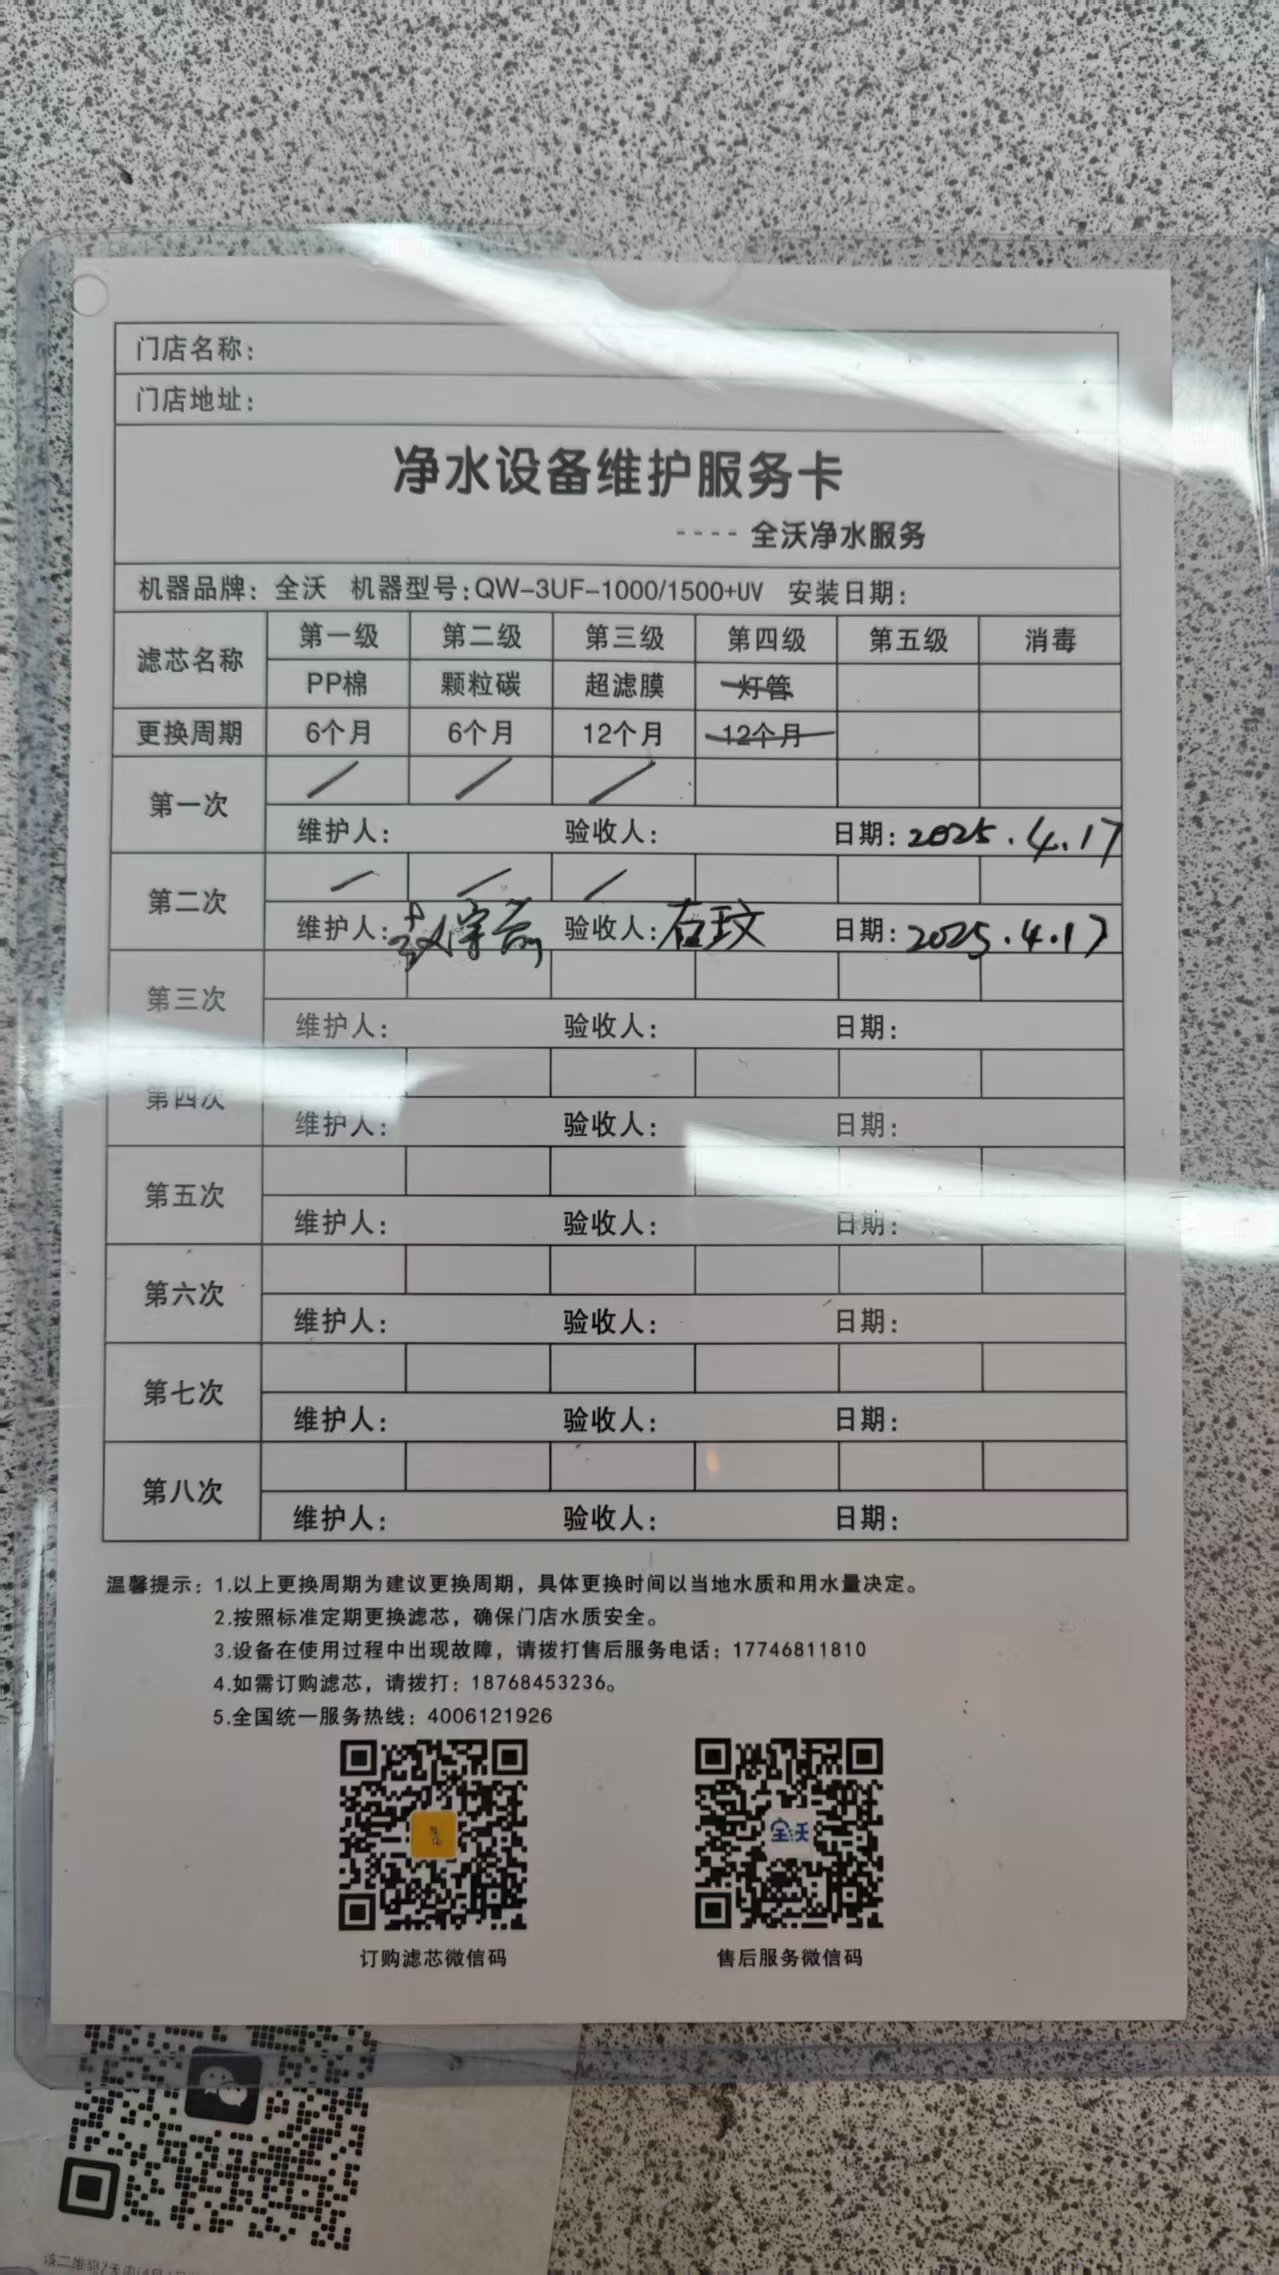 门店名称：
门店地址：
净水设备维护服务卡
---- 全沃净水服务
机器品牌：全沃 机器型号：QW-3UF-1000/1500+UV 安装日期：
滤芯名称 第一级 第二级 第三级 第四级 第五级 消毒
PP棉 颗粒碳 超滤膜 灯管
更换周期 6个月 6个月 12个月 12个月
第一次 / / /
维护人： 验收人： 日期：2025.4.17
第二次 / / /
维护人： 验收人：石玟 日期：2025.4.17
第三次
维护人： 验收人： 日期：
第四次
维护人： 验收人： 日期：
第五次
维护人： 验收人： 日期：
第六次
维护人： 验收人： 日期：
第七次
维护人： 验收人： 日期：
第八次
维护人： 验收人： 日期：
温馨提示：1.以上更换周期为建议更换周期，具体更换时间以当地水质和用水量决定。
2.按照标准定期更换滤芯，确保门店水质安全。
3.设备在使用过程中出现故障，请拨打售后服务电话：17746811810
4.如需订购滤芯，请拨打：18768453236。
5.全国统一服务热线：4006121926
全沃
订购滤芯微信码 售后服务微信码